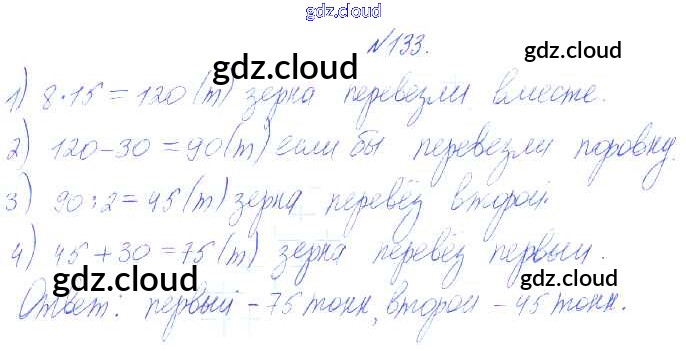 gdz.cloud
№133.
gdz.cloud
gdz.cloud
1) 8·15=120(т) зерна перевезли вместе.
gdz.cloud
2) 120-30=90(т) если бы перевезли поровну.
3) 90:2=45(т) зерна перевёз второй.
4) 45+30=75(т) зерна перевёз первый.
gdz.cloud
gdz.cloud
Ответ: первый - 75 тонн, второй - 45 тонн.